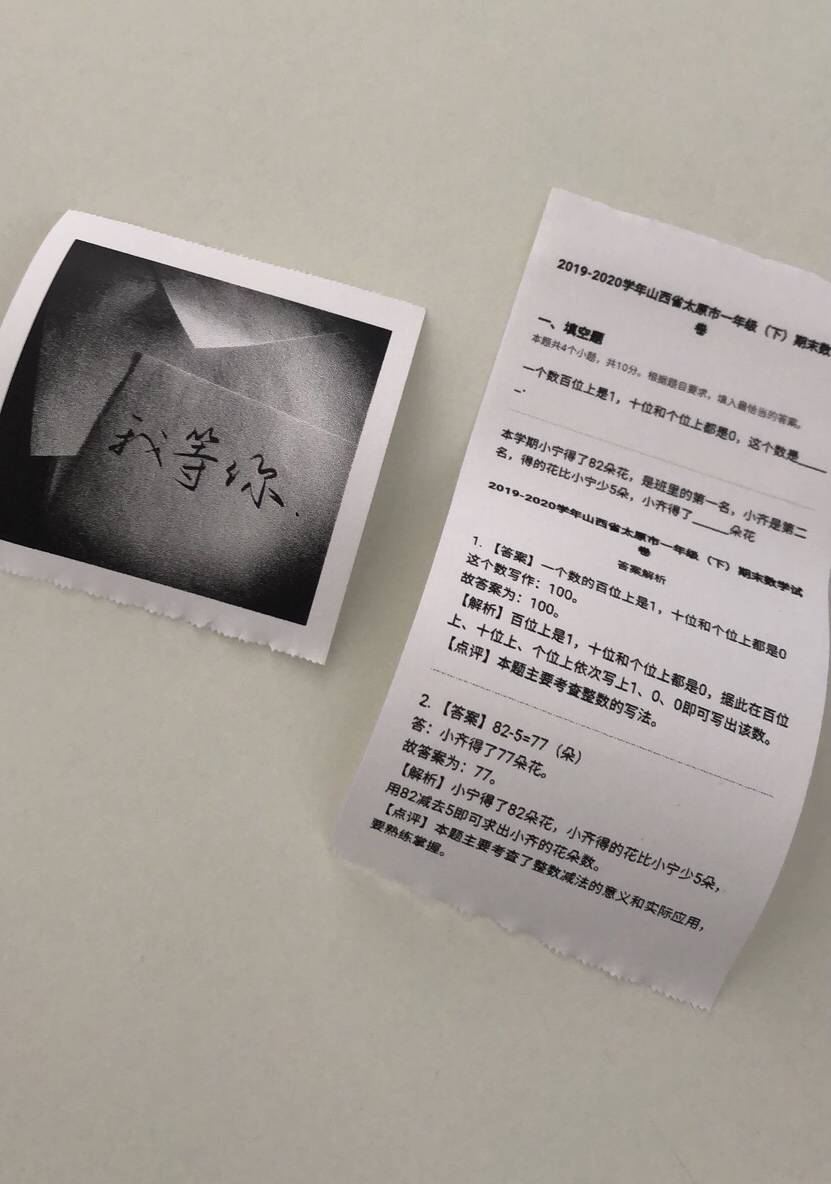 我等你.
2019-2020学年山西省太原市一年级（下）期末数
卷
一、填空题
本题共4个小题，共10分。根据题目要求，填入最恰当的答案。
一个数百位上是1，十位和个位上都是0，这个数是____
_.
本学期小宁得了82朵花，是班里的第一名，小齐是第二
名，得的花比小宁少5朵，小齐得了_____朵花
2019-2020学年山西省太原市一年级（下）期末数学试
卷
答案解析
1. 【答案】一个数的百位上是1，十位和个位上都是0
这个数写作：100。
故答案为：100。
【解析】百位上是1，十位和个位上都是0，据此在百位
上、十位上、个位上依次写上1、0、0即可写出该数。
【点评】本题主要考查整数的写法。
2. 【答案】82-5=77（朵）
答：小齐得了77朵花。
故答案为：77。
【解析】小宁得了82朵花，小齐得的花比小宁少5朵，
用82减去5即可求出小齐的花朵数。
【点评】本题主要考查了整数减法的意义和实际应用，
要熟练掌握。